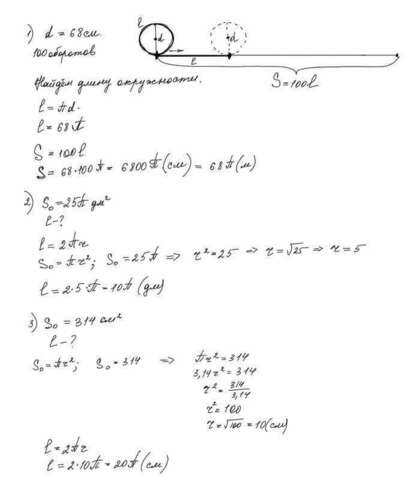 1) d = 68 см. l d d
100 оборотов l S = 100l
Найдём длину окружности.
l = πd.
l = 68π
S = 100l
S = 68·100π = 6800π (см) = 68π (м)
2) S₀ = 25π дм²
l - ?
l = 2πr
S₀ = πr²; S₀ = 25π ⇒ r² = 25 ⇒ r = √25 ⇒ r = 5
l = 2·5·π = 10π (дм)
3) S₀ = 314 см²
l - ?
S₀ = πr²; S₀ = 314 ⇒ πr² = 314
3,14r² = 314
r² = 314/3,14
r² = 100
r = √100 = 10 (см)
l = 2πr
l = 2·10π = 20π (см)